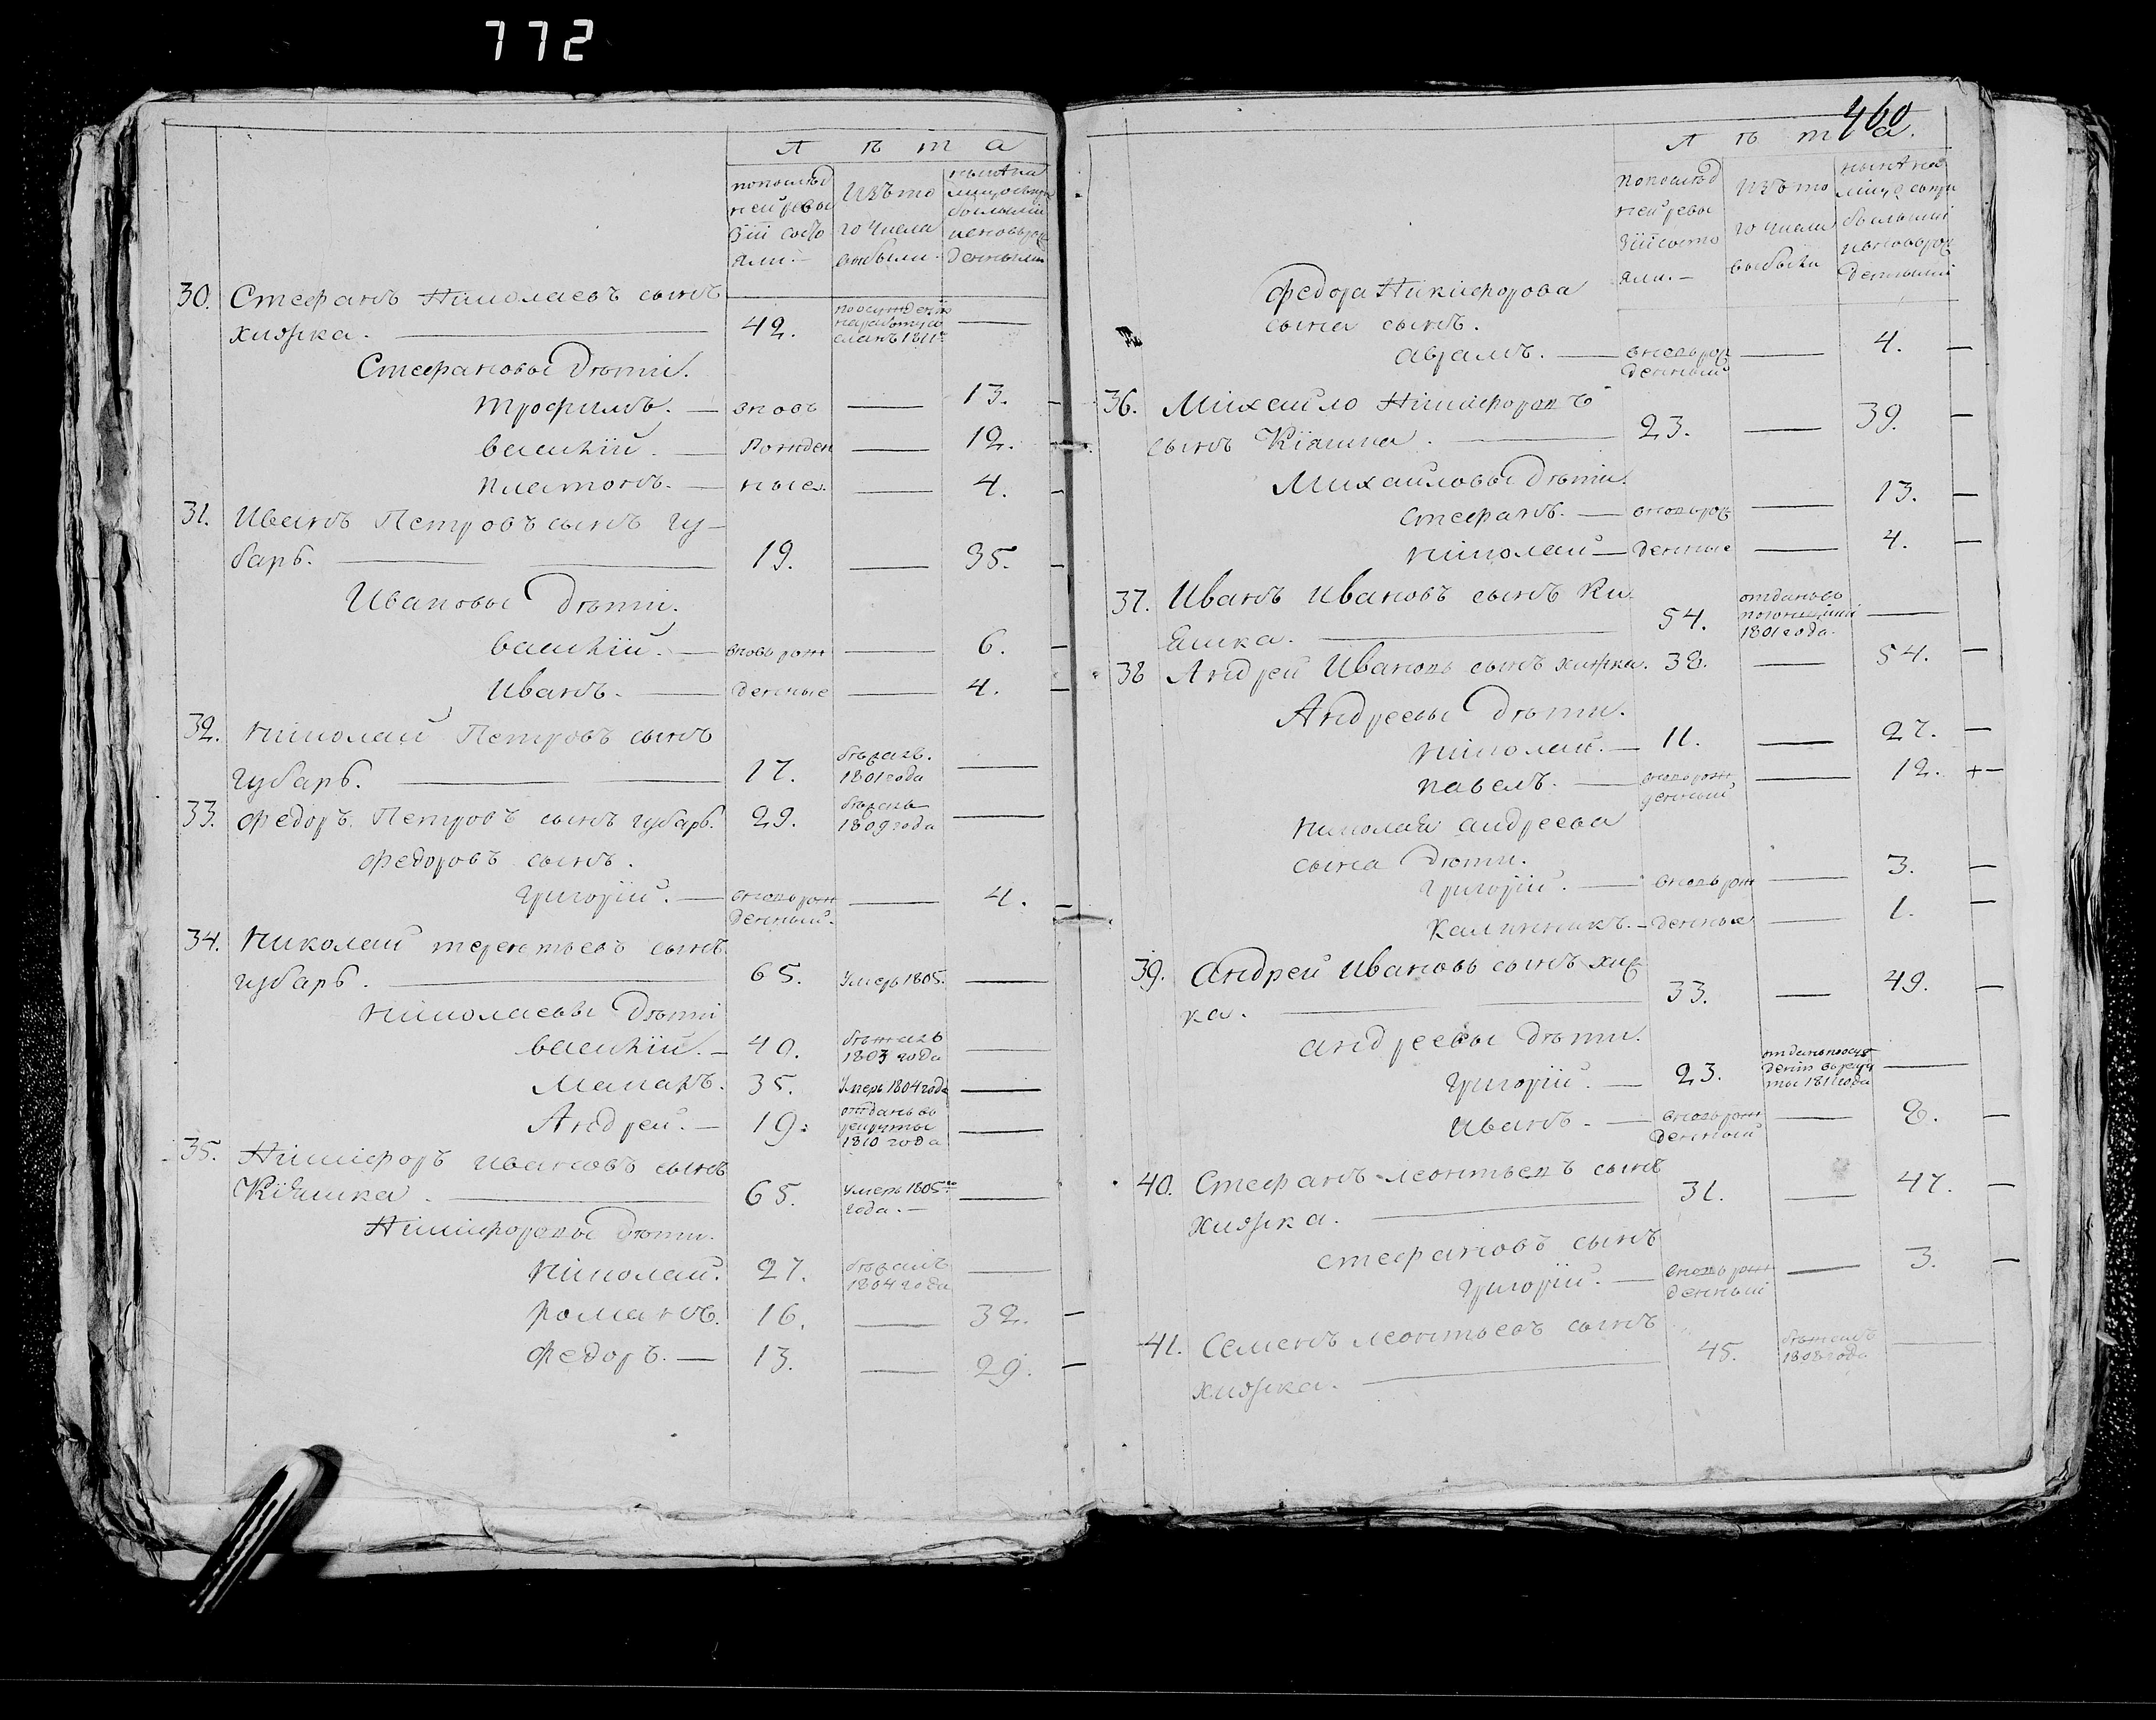 772
Л ѣ т а
по послѣд
ней реви
зіи состо
яли. —
Изъ то
го числа
выбыли.
нынѣ на
лицо съ при
былыми
и новорож
денными
30. Стефанъ Николаевъ сынъ
хижка. — 42. —
Стефановы Дѣти.
трофимъ. — вновь — 13.
василій. — рожден — 12.
платонъ. — ные. — 4.
31. Иванъ Петровъ сынъ гу-
барь. — 19. — 35.
Ивановы Дѣти.
василій. — вновь рож — 6.
Иванъ. — денные — 4.
32. николай Петровъ сынъ
губарь. — 17. бѣжалъ. 1801 года —
33. Федоръ Петровъ сынъ губарь. 29. бѣжалъ 1809 года —
федоровъ сынъ.
григорій. — вновь рож — 4.
денный.
34. Николай терентьевъ сынъ
губарь. — 65. Умеръ 1805. —
николаевы Дѣти
василій. — 40. бѣжалъ 1803 года —
35. Умеръ 1804 года —
Андрей. — 19. отданъ въ рекруты 1810 года —
35. Никифоръ ивановъ сынъ
Кіяшка. — 65. умеръ 1805го года. — —
Никифоровы Дѣти.
николай. 27. бѣжалъ 1804 года —
романъ. 16. — 32.
Федоръ. — 13. — 29.
460
Л ѣ т а.
по послѣд
ней реви
зіи состо
яли. —
Изъ то
го числа
выбыли
нынѣ на
лицо съ при
былыми
и новорож
денными
Федора Никифорова
сына сынъ.
аврамъ. — вновь рож — 4.
денный
36. Михайло Никифоровъ
сынъ Кіяшка. — 23. — 39.
Михайловы Дѣти.
стефанъ. — вновь рож — 13.
николай — денные — 4.
37. Иванъ Ивановъ сынъ Ки
яшка. — 54. 1801 года. —
38 Андрей Ивановъ сынъ хижка. 38. — 54.
Андреевы Дѣти.
николай. — 11. — 27.
павелъ. — вновь рож — 12. +
денный
николая андреева
сына Дѣти.
григорій. — вновь рож — 3.
калинникъ. — денные — 1.
39. Андрей Ивановъ сынъ хиж
ка. — 33. — 49.
андреевы дѣти.
григорій. — 23. 1811 года —
иванъ. — вновь рож — 8.
денный
40. Стефанъ леонтьевъ сынъ
хижка. — 31. — 47.
стефановъ сынъ
григорій. — вновь рож — 3.
денный
41. Семенъ леонтьевъ сынъ
хижка. — 45. бѣжалъ 1808 года —